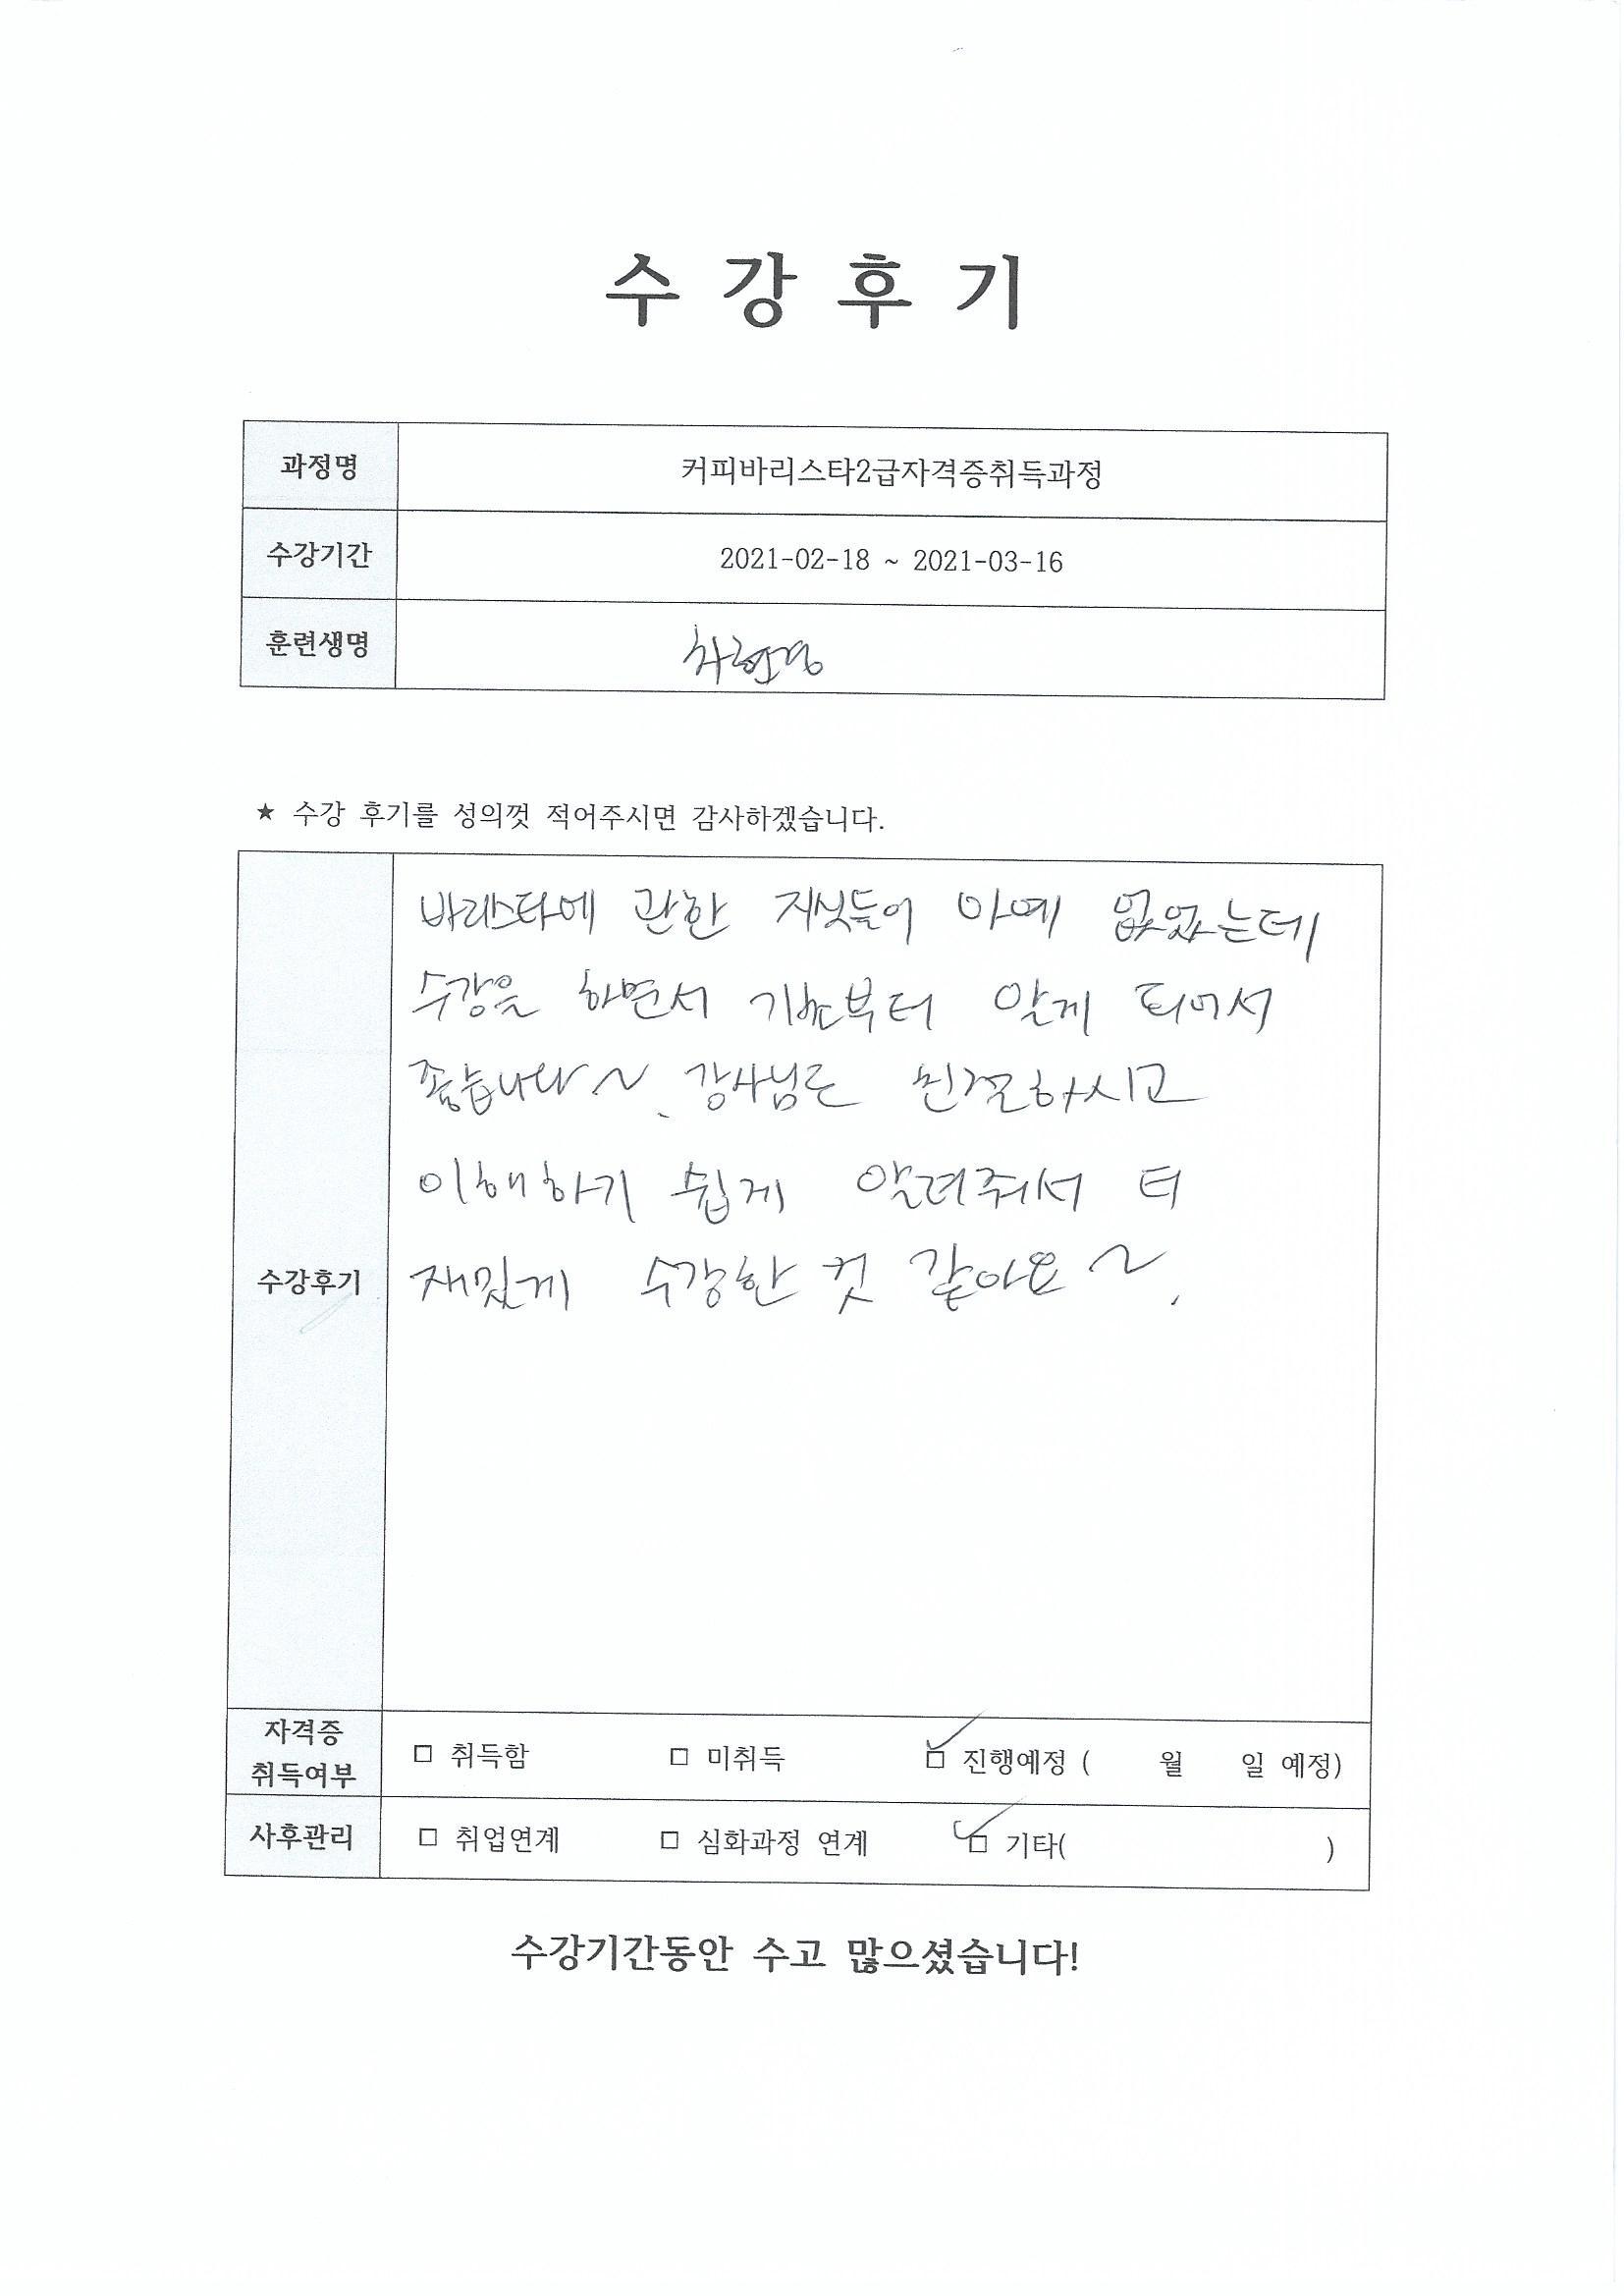 수 강 후 기
과정명 커피바리스타2급자격증취득과정
수강기간 2021-02-18 ~ 2021-03-16
훈련생명 차현경
★ 수강 후기를 성의껏 적어주시면 감사하겠습니다.
바리스타에 관한 지식들이 아예 없었는데
수강을 하면서 기초부터 알게 되어서
좋습니다~. 강사님도 친절하시고
이해하기 쉽게 알려줘서 더
수강후기 재밌게 수강한 것 같아요~.
자격증
취득여부 □ 취득함 □ 미취득 ☑ 진행예정 ( 월 일 예정)
사후관리 □ 취업연계 □ 심화과정 연계 ☑ 기타( )
수강기간동안 수고 많으셨습니다!